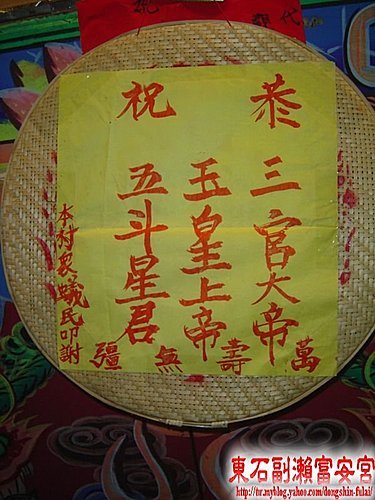 恭祝
三官大帝
玉皇上帝
五斗星君
萬壽無疆
本村眾蟻民叩謝
東石副瀨富安宮
http://tw.myblog.yahoo.com/dongshin-fulai/